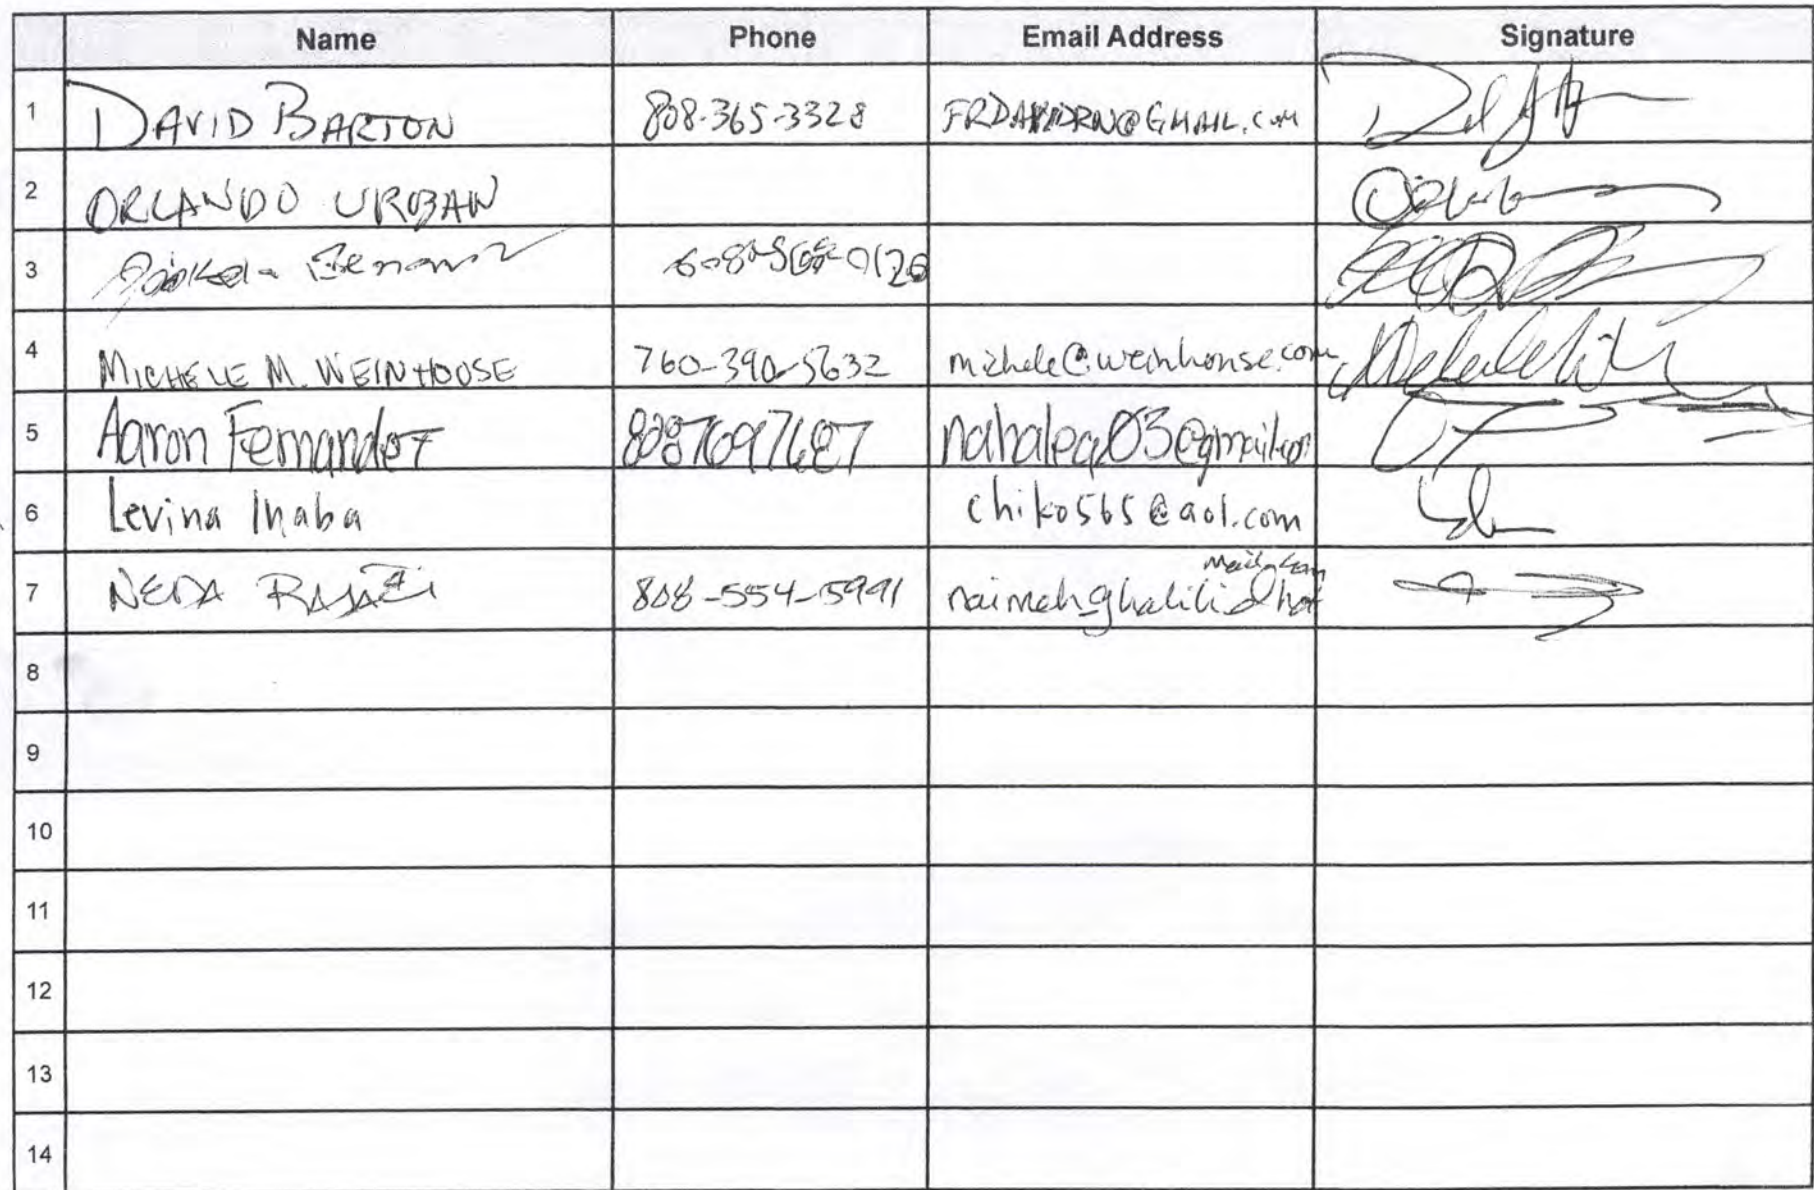 Name Phone Email Address Signature
1 DAVID BARTON 808-365-3328 FRDAVIDRN@GMAIL.COM
2 ORLANDO URGBAN
3
4 MICHELE M. WEINHOUSE 760-390-5632 michele@weinhouse.com
5 Aaron Fernandez 8087697687
6 Levina Inaba chiko565@aol.com
mail.com
7 NEDA 808-554-5991 naimehghalili@hot
8
9
10
11
12
13
14